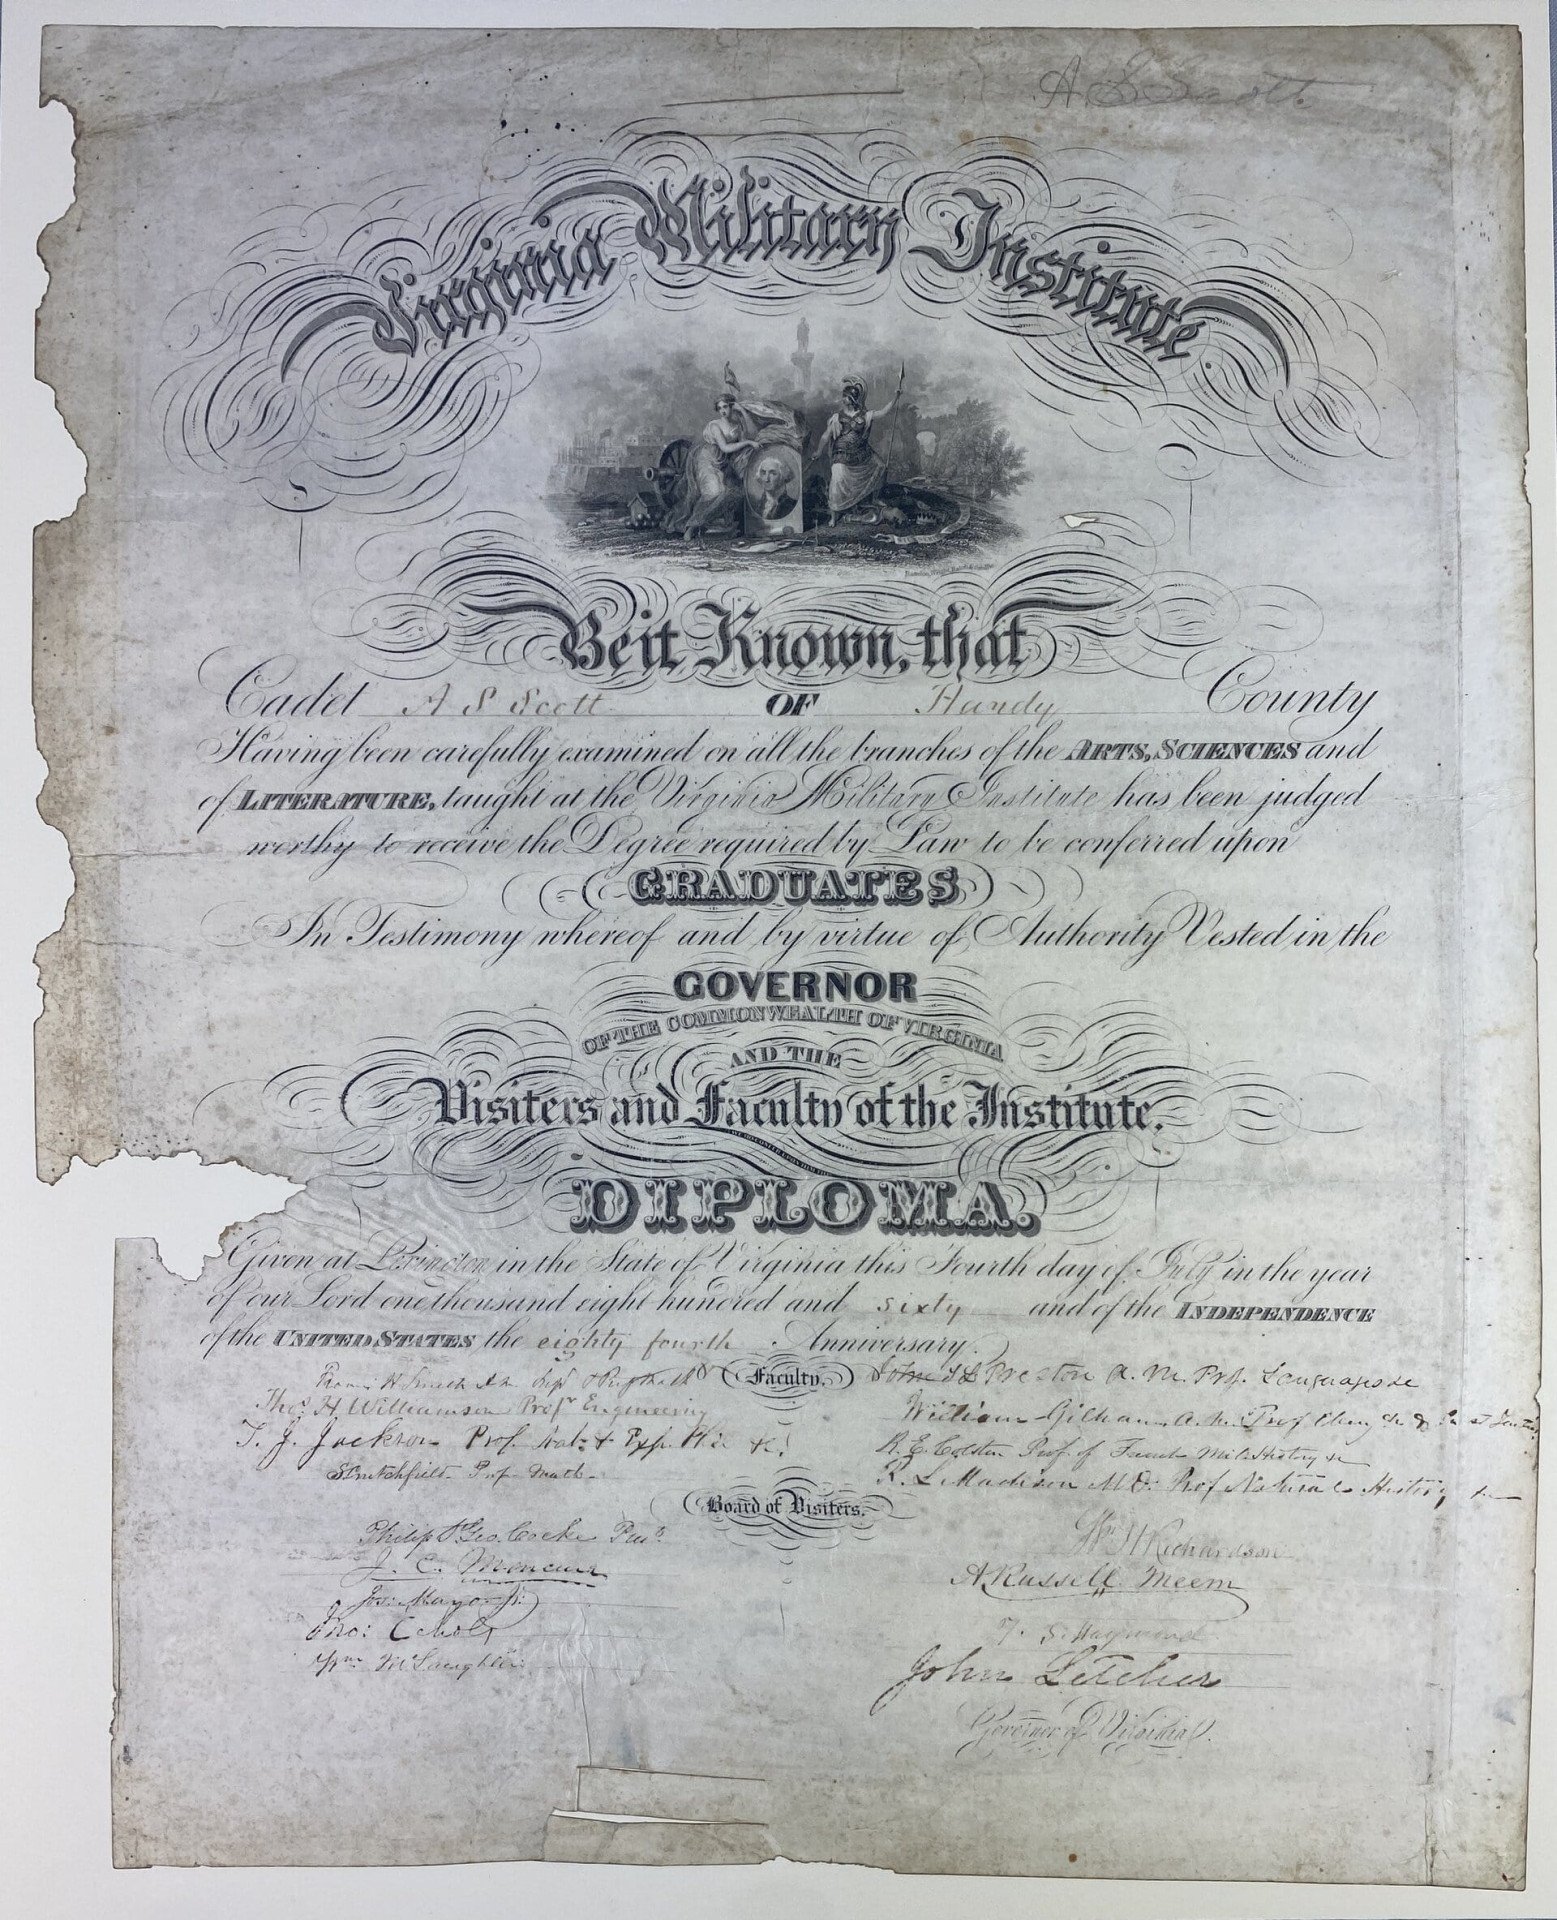 A. S. Scott.
Virginia Military Institute
Be it Known, that
Cadet A S Scott OF Hardy County
Having been carefully examined on all the branches of the ARTS, SCIENCES and
of LITERATURE, taught at the Virginia Military Institute has been judged
worthy to receive the Degree required by Law to be conferred upon
GRADUATES
In Testimony whereof and by virtue of Authority Vested in the
GOVERNOR
OF THE COMMONWEALTH OF VIRGINIA
AND THE
Visiters and Faculty of the Institute.
WE DO CONFER UPON HIM THIS
DIPLOMA.
Given at Lexington in the State of Virginia this Fourth day of July in the year
of our Lord one thousand eight hundred and sixty and of the INDEPENDENCE
of the UNITED STATES the eighty fourth Anniversary.
Faculty.
Francis H Smith
Thos. H Williamson Profr Engineering
T. J. Jackson Prof. Nat: & Exp. Phil &c.
S Crutchfield Prof Math
John T L Preston A. M. Prof. Languages &c
William Gilham A. M. Prof
R. E. Colston Prof of French Mil: History &c
R. L Madison M D: Prof Natural History &c
Board of Visiters.
Philip St. Geo. Cocke Prest.
J. C. Moncure
Jos: Mayo Jr:
Jno: Echols
Wm McLaughlin
Wm H Richardson
A. Russell Meem
T. S. Haymond
John Letcher
Governor of Virginia.